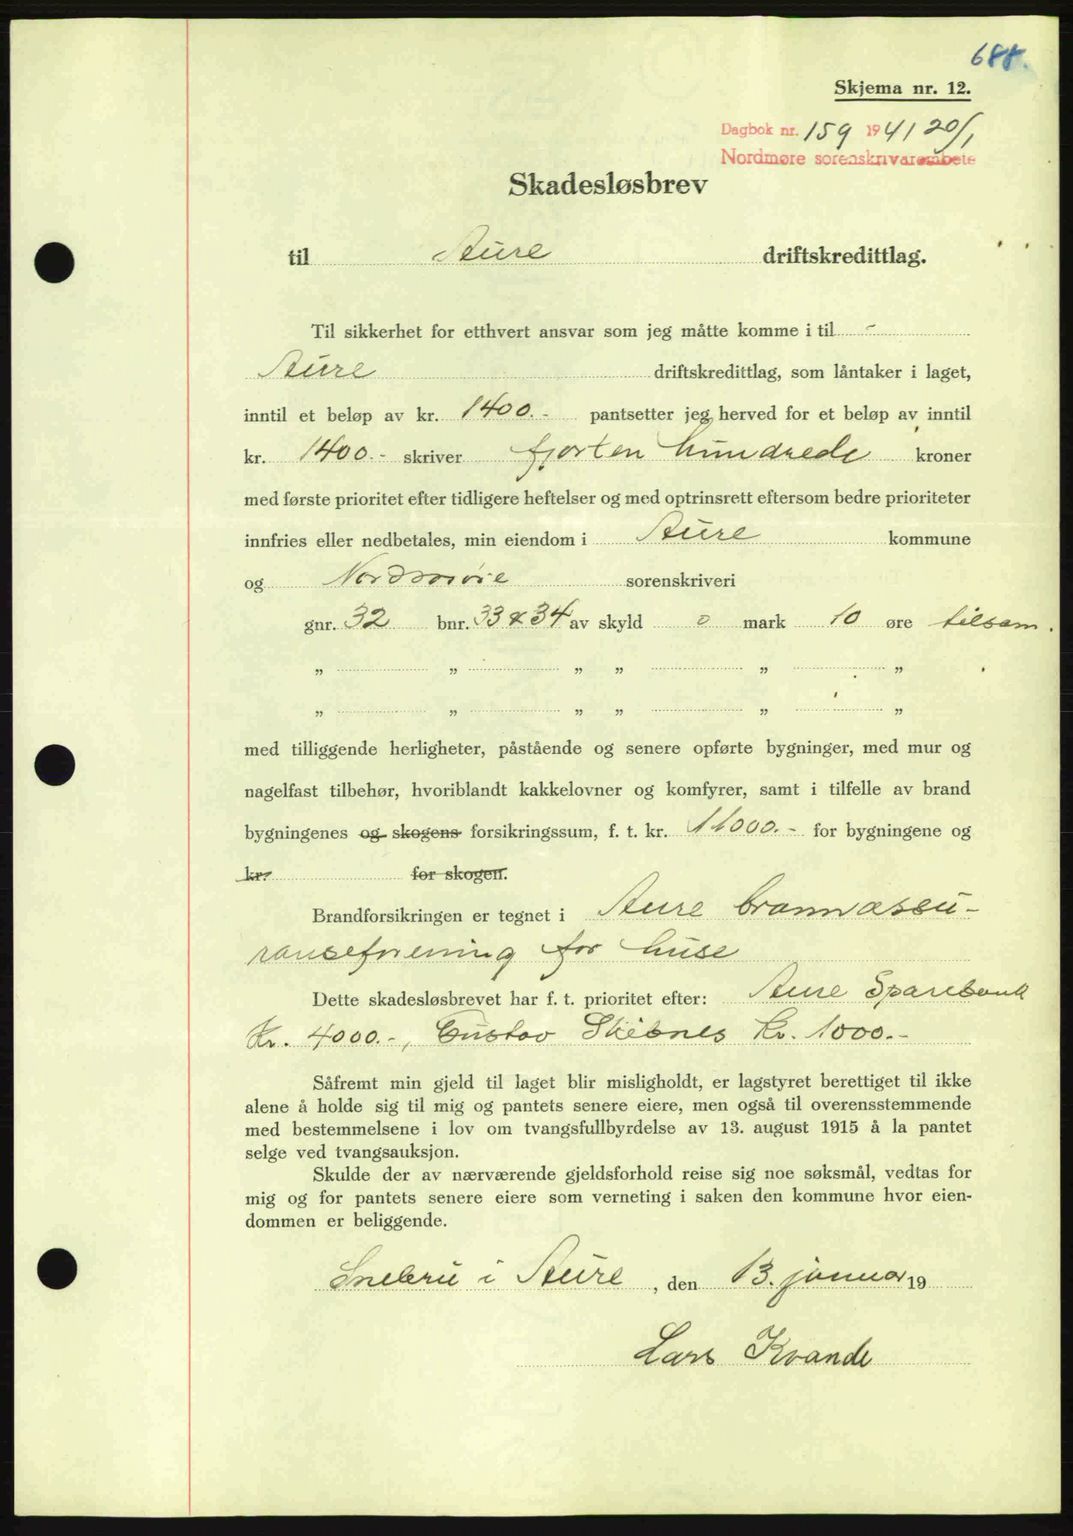 688.
Skjema nr. 12.
Dagbok nr. 159 1941 20/1
Nordmøre sorenskriverembete
Skadesløsbrev
til Aure driftskredittlag.
Til sikkerhet for etthvert ansvar som jeg måtte komme i til -
Aure driftskredittlag, som låntaker i laget,
inntil et beløp av kr. 1400.- pantsetter jeg herved for et beløp av inntil
kr. 1400.- skriver fjorten hundrede kroner
med første prioritet efter tidligere heftelser og med optrinsrett eftersom bedre prioriteter
innfries eller nedbetales, min eiendom i Aure kommune
og Nordmøre sorenskriveri
gnr. 32 bnr. 33 & 34 av skyld 0 mark 10 øre tilsam.
„ „ „ „ „ „
„ „ „ „ „ „
med tilliggende herligheter, påstående og senere opførte bygninger, med mur og
nagelfast tilbehør, hvoriblandt kakkelovner og komfyrer, samt i tilfelle av brand
bygningenes og skogens forsikringssum, f. t. kr. 11000.- for bygningene og
kr. for skogen.
Brandforsikringen er tegnet i Aure brannassu-
ranseforening for huse
Dette skadesløsbrevet har f. t. prioritet efter: Aure Sparebank
Kr. 4000.-, Gustav Kr. 1000.-
Såfremt min gjeld til laget blir misligholdt, er lagstyret berettiget til ikke
alene å holde sig til mig og pantets senere eiere, men også til overensstemmende
med bestemmelsene i lov om tvangsfullbyrdelse av 13. august 1915 å la pantet
selge ved tvangsauksjon.
Skulde der av nærværende gjeldsforhold reise sig noe søksmål, vedtas for
mig og for pantets senere eiere som verneting i saken den kommune hvor eien-
dommen er beliggende.
i Aure, den 13. januar 19
Lars Kvande